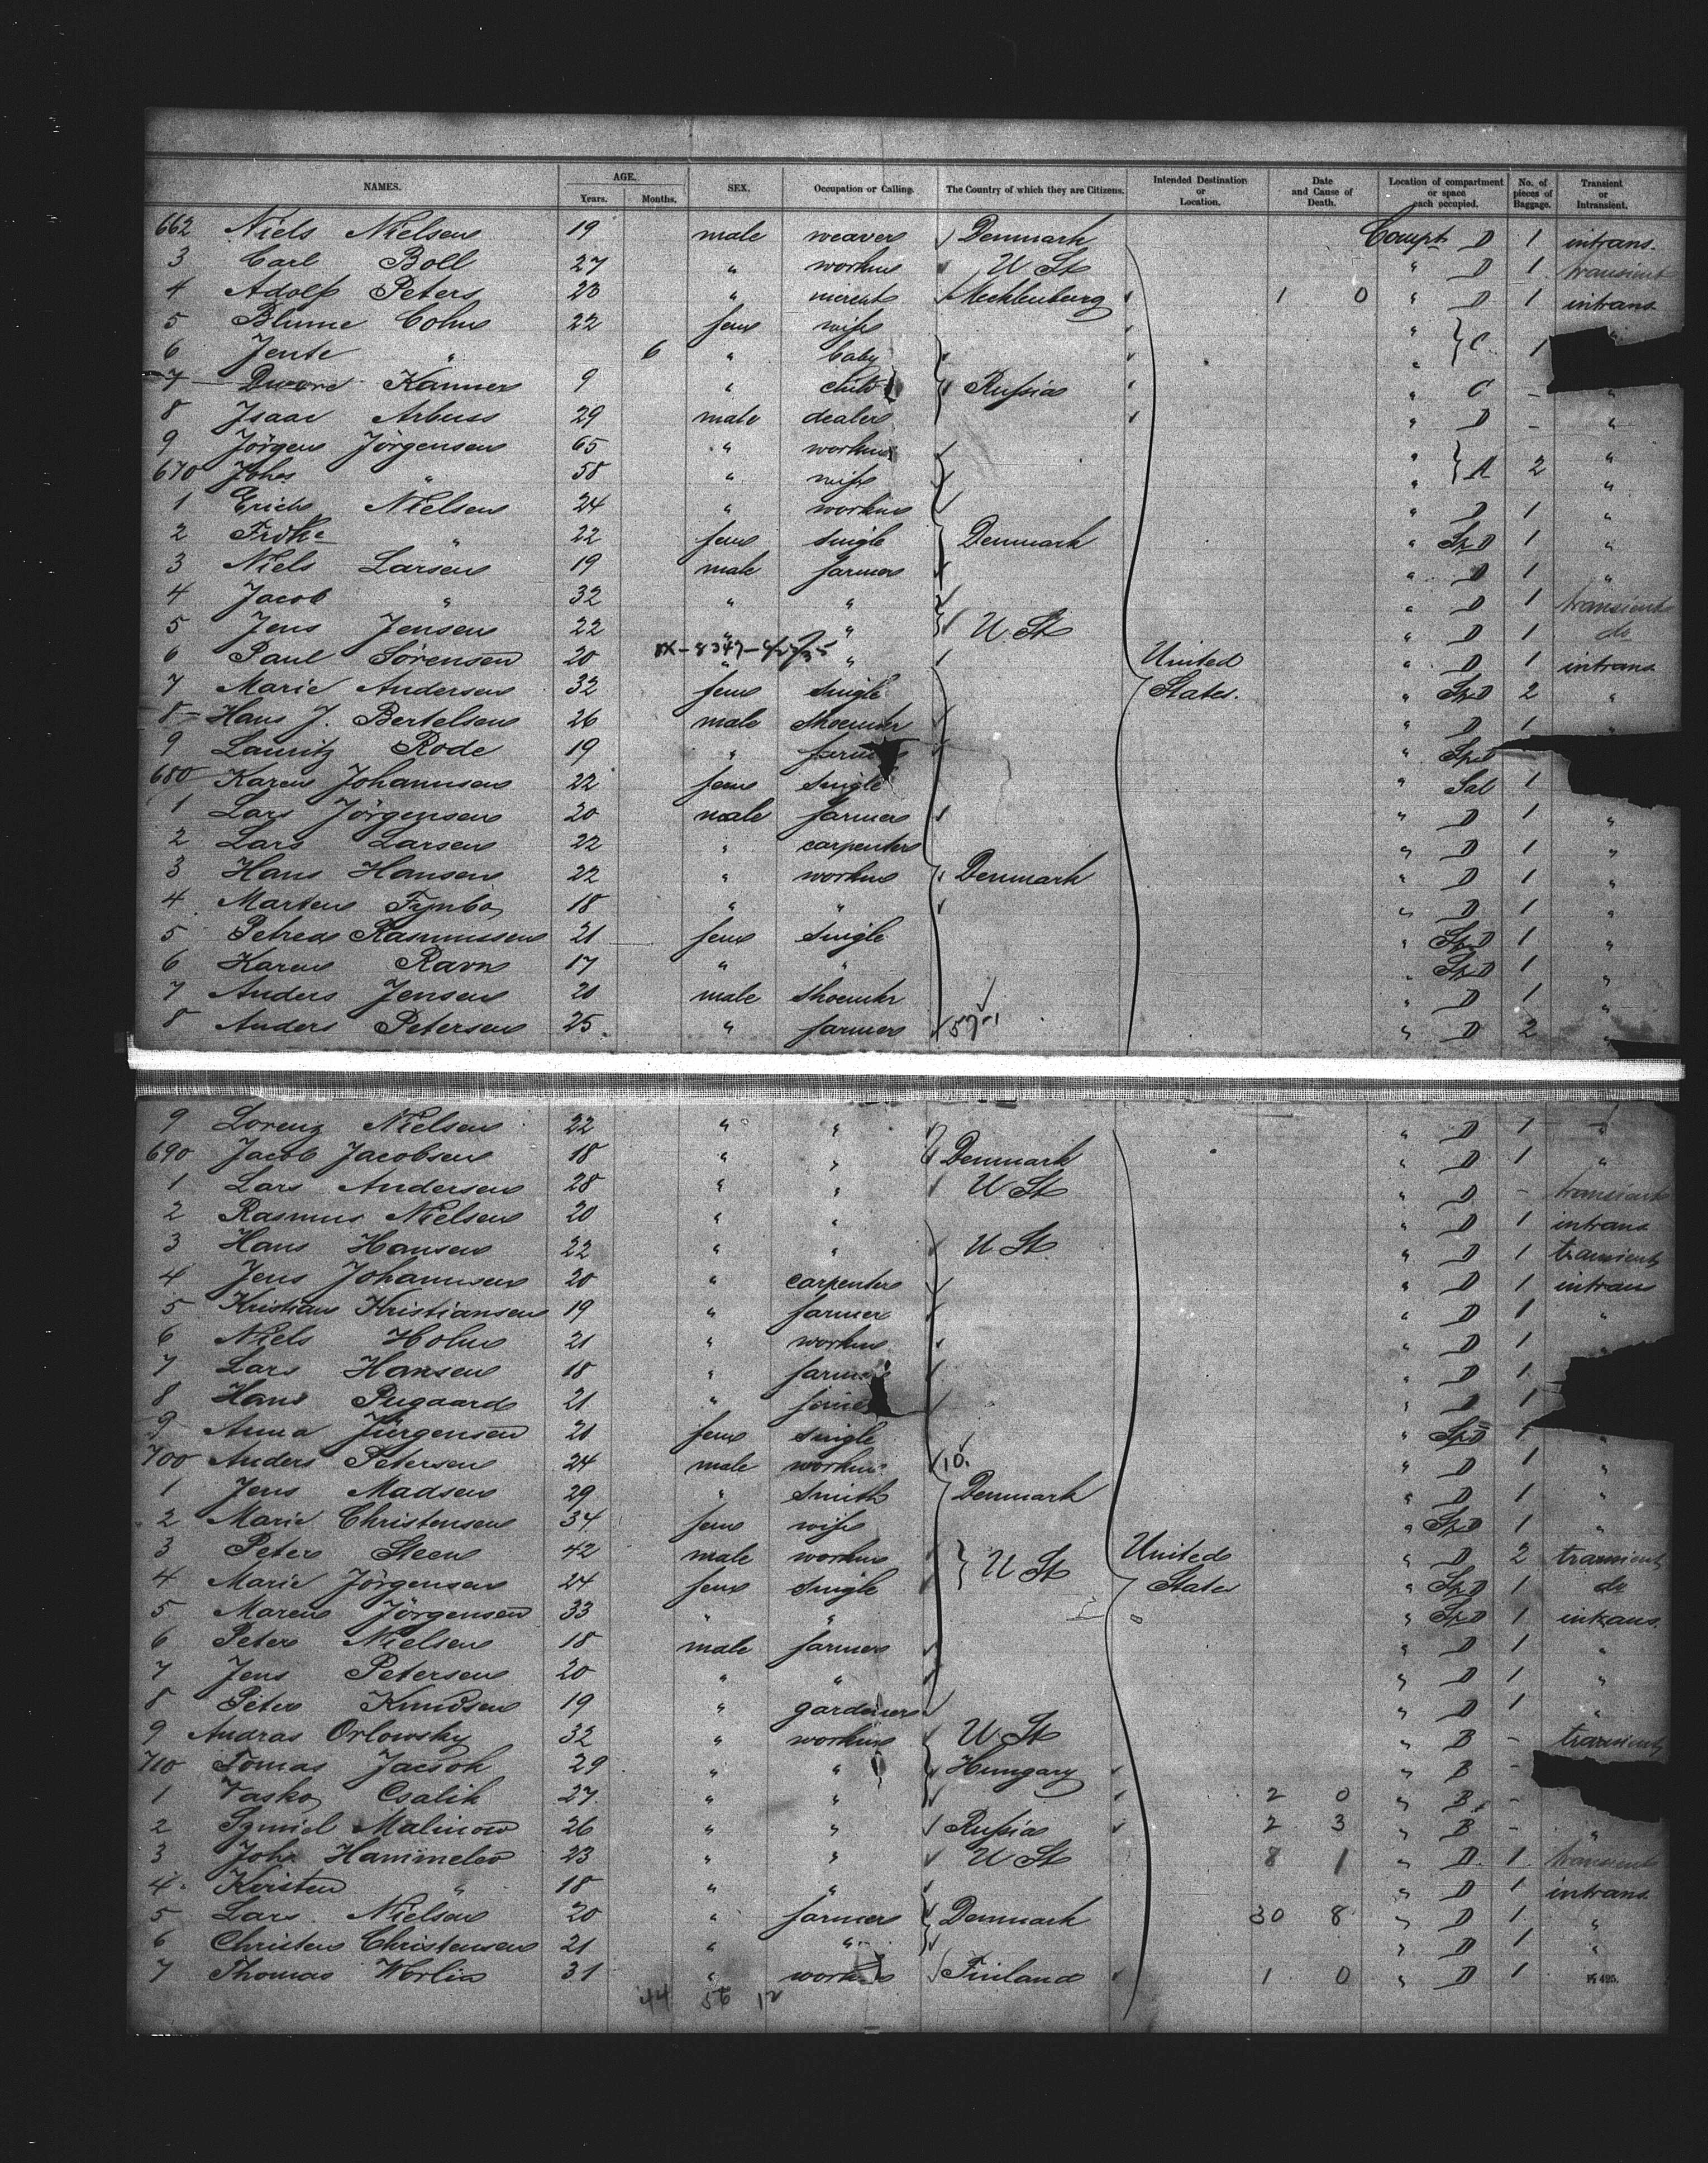 NAMES. AGE. Years. Months. SEX. Occupation or Calling. The Country of which they are Citizens. Intended Destination or Location. Date and Cause of Death. Location of compartment or space each occupied. No. of pieces of Baggage. Transient or Intransient.
662 Niels Nielsen 19 male weaver Denmark Compt D 1 intrans.
3 Carl Boll 27 " workm U St " D 1 transient
4 Adolf Peters 23 " Mecklenburg 1 0 " D 1 intrans
5 Blume Cohn 22 fem wife "
6 Jente " 6 " baby " } C 1
7 Kanner 9 " child Russia " C - "
8 Isaac Arbuss 29 male dealer " D - "
9 Jörgen Jörgensen 65 " workm " "
670 " 58 " wife " } A 2 "
1 Erich Nielsen 24 " workm " D 1 "
2 " 22 fem single Denmark " Sp D 1 "
3 Niels Larsen 19 male farmer " D 1 "
4 Jacob " 32 " " " D 1 transient
5 Jens Jensen 22 " " U St " D 1 do
6 Paul Sörensen 20 " " United " D 1 intrans
7 Marie Andersen 32 fem single States. " Sp D 2 "
8 Hans J. Bertelsen 26 male shoemkr " D 1 "
9 Lauritz Rode 19 " farmer " Sp D
680 Karen Johannsen 22 fem single " Sal 1
1 Lars Jörgensen 20 male farmer " D 1 "
2 Lars Larsen 22 " carpenter " D 1 "
3 Hans Hansen 22 " workm Denmark " D 1 "
4 Marten Fynbo 18 " " " D 1 "
5 Petrea Rasmussen 21 fem single " Sp D 1 "
6 Karen Ravn 17 " " " Sp D 1 "
7 Anders Jensen 20 male shoemkr " D 1 "
8 Anders Petersen 25 " farmer " D 2 "
9 Lorenz Nielsen 22 " " " D 1 "
690 Jacob Jacobsen 18 " " Denmark " D 1 "
1 Lars Andersen 28 " " U St " D - transient
2 Rasmus Nielsen 20 " " " D 1 intrans
3 Hans Hansen 22 " " U St " D 1 transient
4 Jens Johannsen 20 " carpenter " D 1 intrans
5 Kristian Kristiansen 19 " farmer " D 1 "
6 Niels Holm 21 " workm " D 1 "
7 Lars Hansen 18 " farmer " D 1
8 Hans Pugaard 21 " " D 1
9 Anna Jürgensen 21 fem single " Sp D 1 "
700 Anders Petersen 24 male workm 10. " D 1 "
1 Jens Madsen 29 " smith Denmark " D 1 "
2 Marie Christensen 34 fem wife " Sp D 1 "
3 Peter Steen 42 male workm U St United " D 2 transient
4 Marie Jörgensen 24 fem single States " Sp D 1 do
5 Maren Jörgensen 33 " " " Sp D 1 intrans.
6 Peter Nielsen 18 male farmer " D 1 "
7 Jens Petersen 20 " " " D 1 "
8 Peter Knudsen 19 " gardener " D 1 "
9 Andras Orlowsky 32 " workm U St " B - transient
710 Tomas 29 " " Hungary " B -
1 Vasko Csalik 27 " " 2 0 " B -
2 Malinow 26 " " Russia 2 3 " B - "
3 Joh. Hammelev 23 " " U St 8 1 " D 1 transient
4 Kirsten " 18 " " " D 1 intrans
5 Lars Nielsen 20 " farmer Denmark 30 8 " D 1 "
6 Christen Christensen 21 " " " D 1 "
7 Thomas 31 " workm Finland 1 0 " D 1
44 56 12